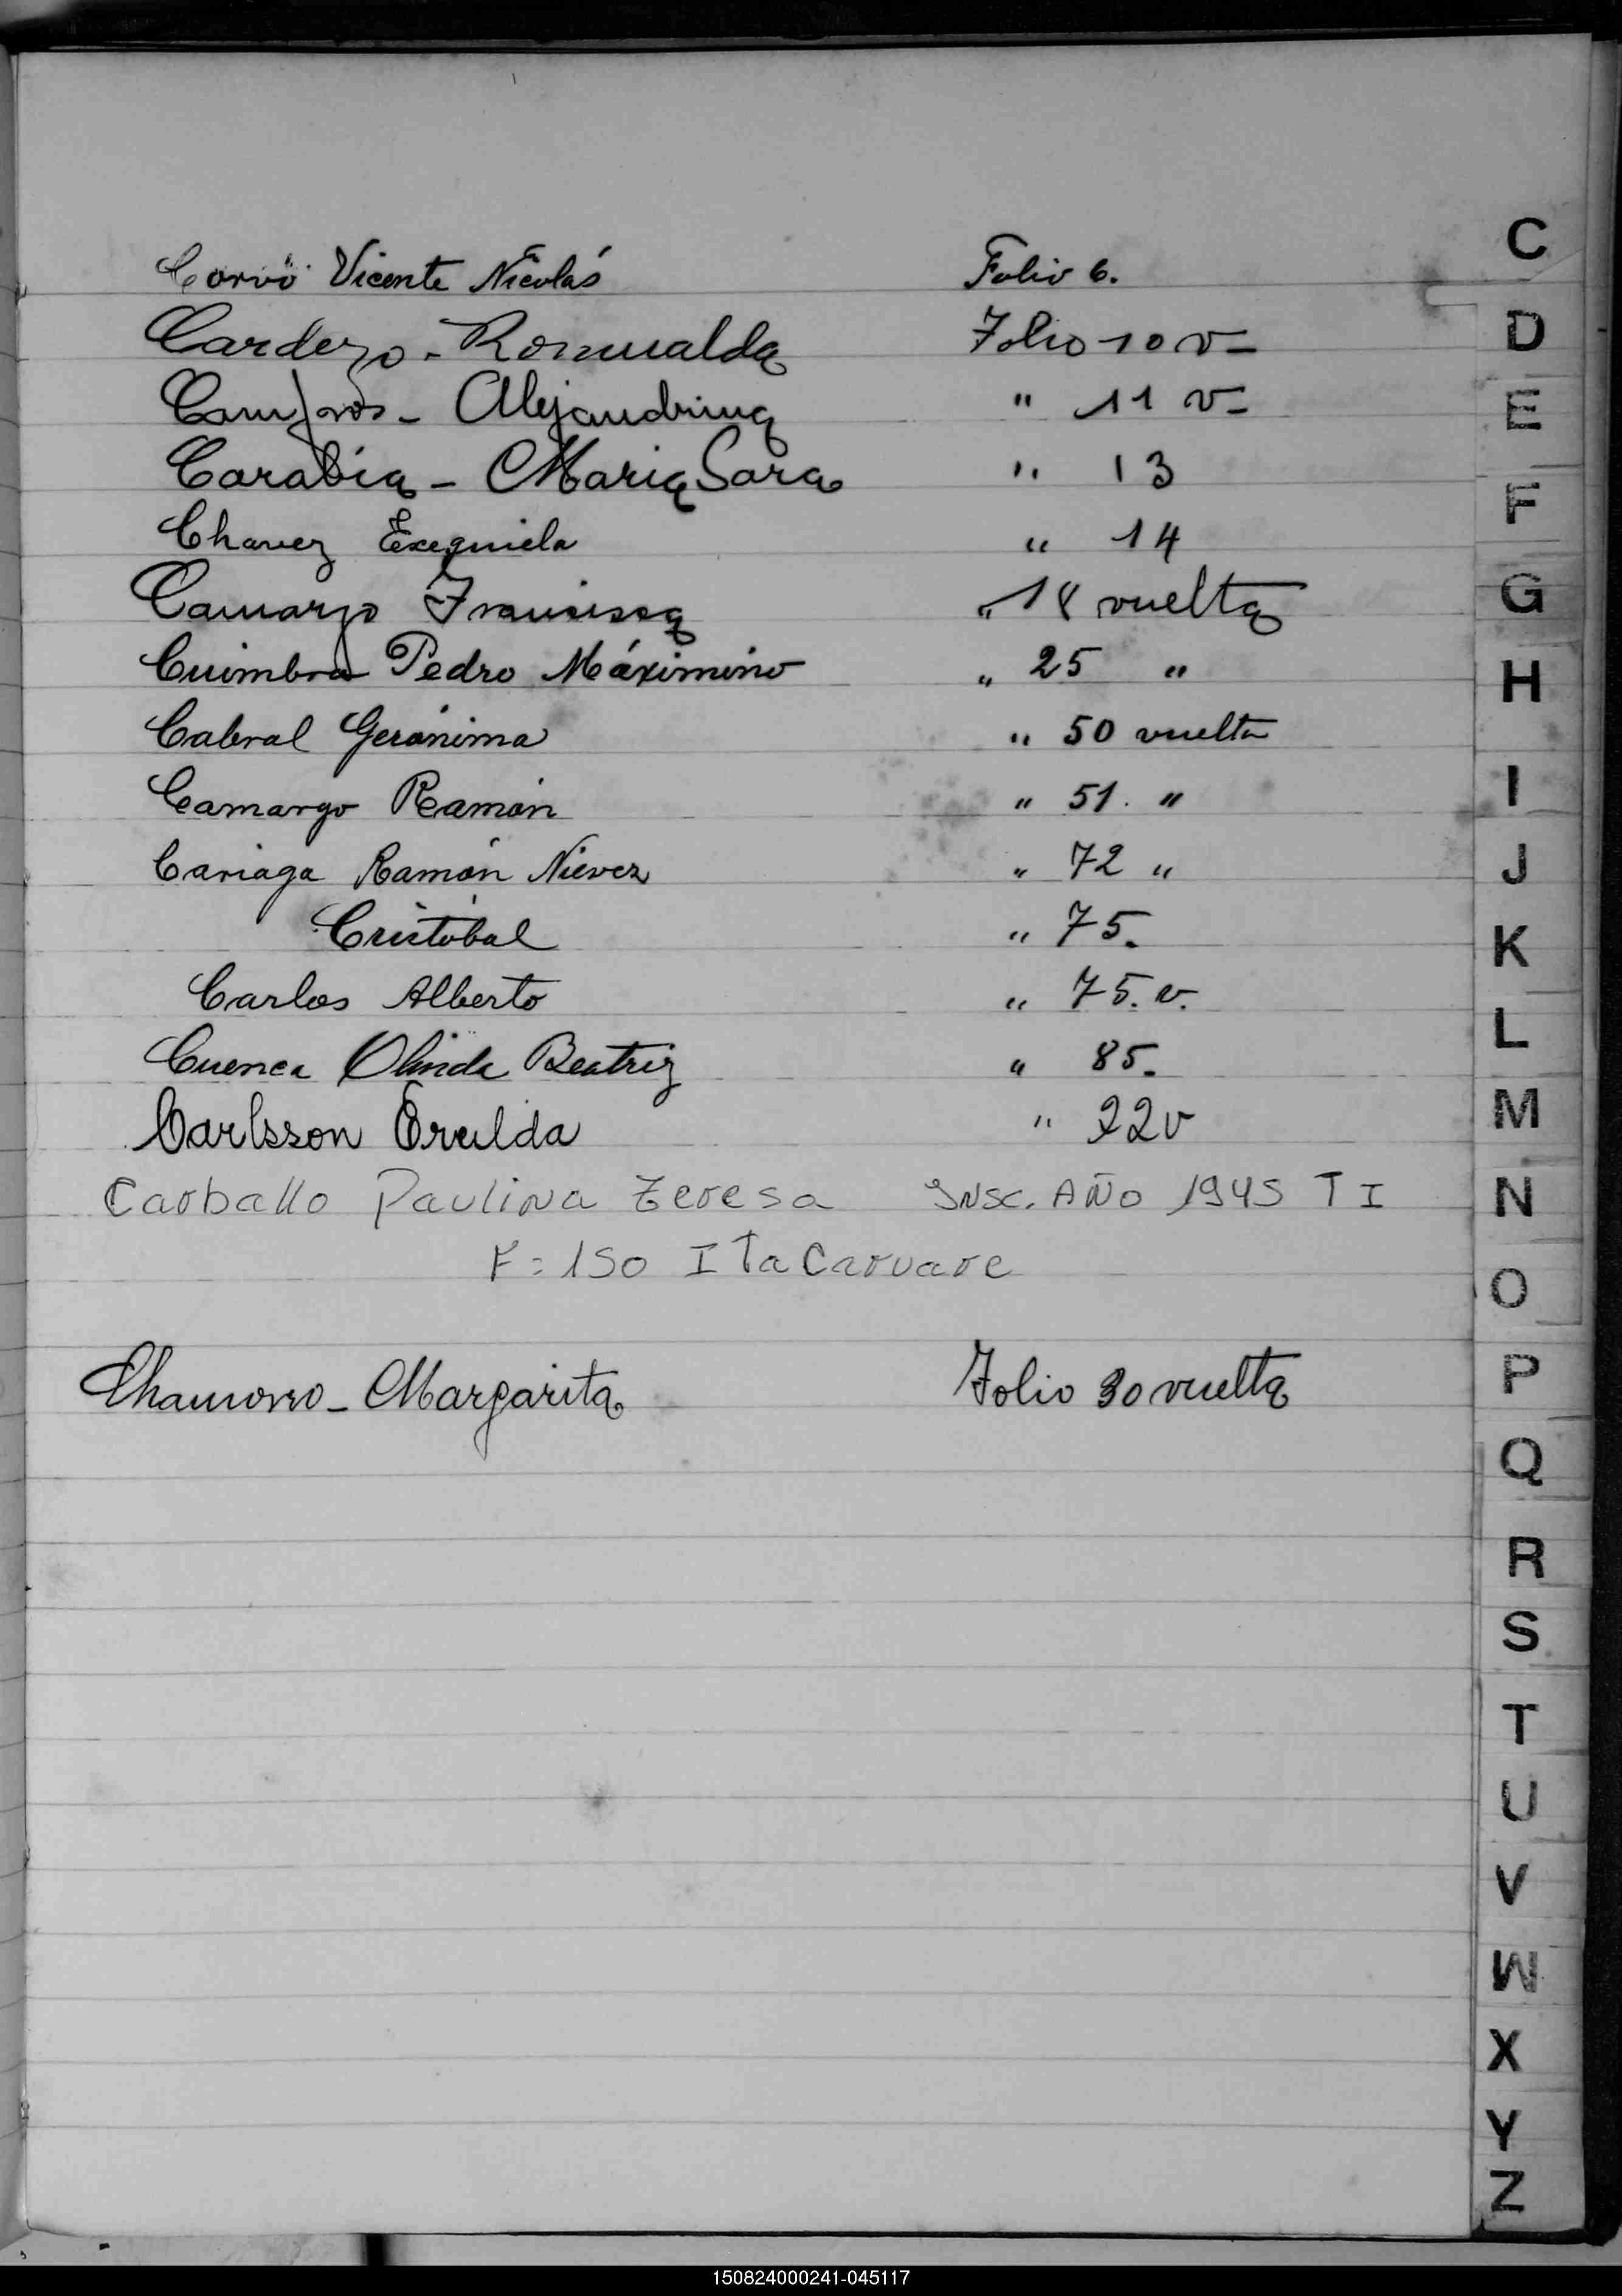 Corvo Vicente Nicolás Folio 6.
Cardozo - Romualda Folio 10 v-
Campos - Alejandrina " 11 v-
Carabia - Maria Sara " 13
Chavez Exequiela " 14
Camargo Francisca " 18 vuelta
Cuimbra Pedro Máximino " 25 "
Cabral Gerónima " 50 vuelta
Camargo Ramón " 51. "
Cariaga Ramón Nievez " 72 "
Cristóbal " 75.
Carlos Alberto " 75. v.
Cuenca Olinda Beatriz " 85.
Carlsson Erulda " 22v
Carballo Paulina Teresa INSC. AÑO 1945 T I
F: 150 ITaCaruare
Chamorro - Margarita Folio 30 vuelta
C
D
E
F
G
H
I
J
K
L
M
N
O
P
Q
R
S
T
U
V
W
X
Y
Z
150824000241-045117